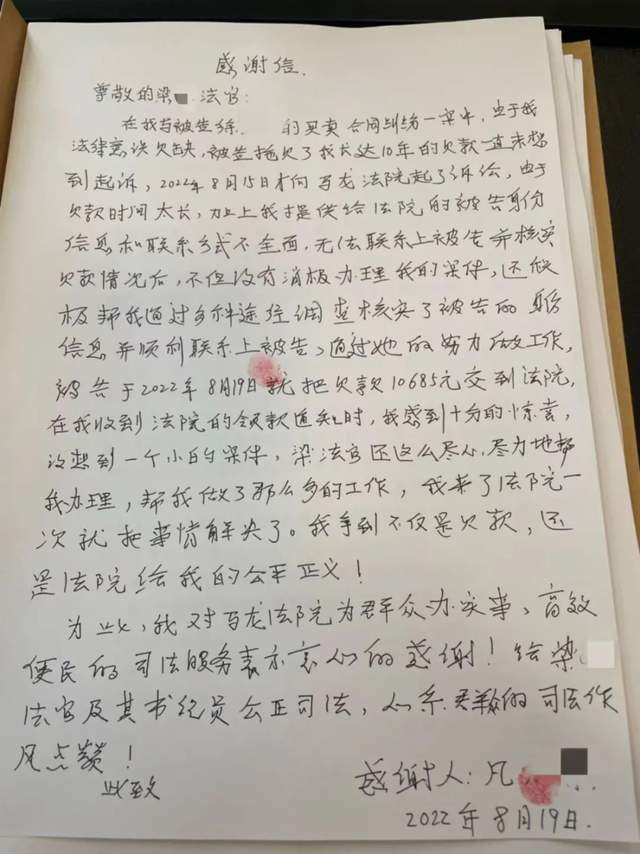 感谢信.
尊敬的梁 法官:
在我与被告徐 的买卖合同纠纷一案中,由于我
法律意识欠缺,被告拖欠了我长达10年的欠款一直未想
到起诉,2022年8月15日才向马龙法院起了诉讼,由于
欠款时间太长,加上我提供给法院的被告身份
信息和联系方式不全面,无法联系上被告并核实
欠款情况后,不但没有消极办理我的案件,还积
极帮我通过多种途径调查核实了被告的身份
信息并顺利联系上被告、通过她的努力做工作,
被告于2022年8月19日就把欠款10685元交到法院,
在我收到法院的领款通知时,我感到十分的惊喜,
没想到一个小的案件,梁法官还这么尽心、尽力地帮
我办理,帮我做了那么多的工作,我来了法院一
次就把事情解决了。我拿到不仅是欠款,还
是法院给我的公平正义!
为此,我对马龙法院为群众办实事、高效
便民的司法服务表示衷心的感谢!给梁
法官及其书记员公正司法,心系群众的司法作
风点赞!
此致
感谢人:凡
2022年8月19日.